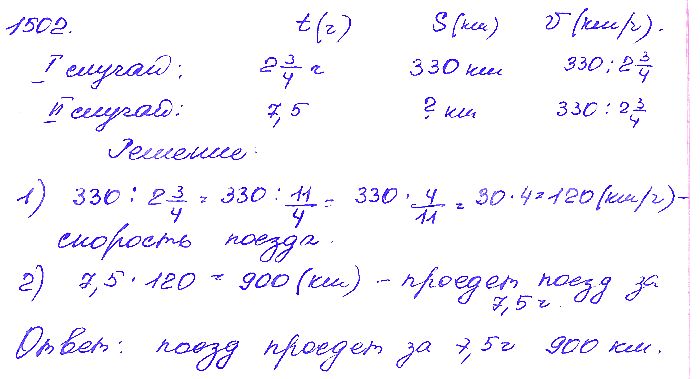 1502. t(ч) S(км) V(км/ч).
I случай: 2 3/4 ч 330 км 330 : 2 3/4
II случай: 7,5 ? км 330 : 2 3/4
Решение:
1) 330 : 2 3/4 = 330 : 11/4 = 330 · 4/11 = 30 · 4 = 120 (км/ч) –
скорость поезда.
2) 7,5 · 120 = 900 (км) – проедет поезд за
7,5 ч.
Ответ: поезд проедет за 7,5 ч 900 км.